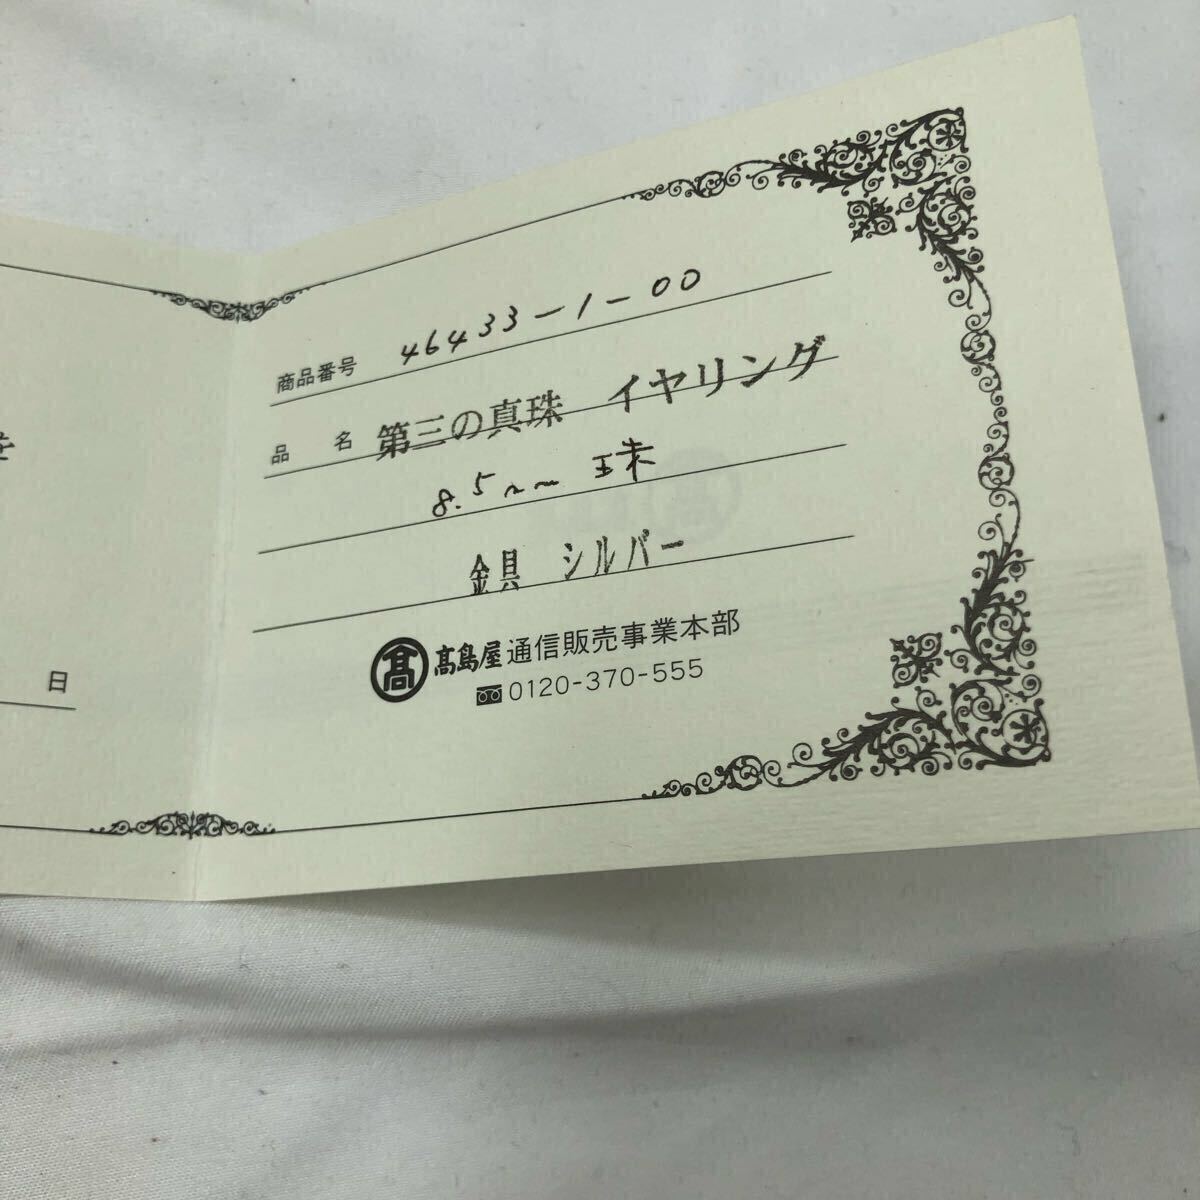 商品番号 46433-1-00
品名 第三の真珠 イヤリング
8.5mm 珠
金具 シルバー
髙 髙島屋通信販売事業本部
0120-370-555
日